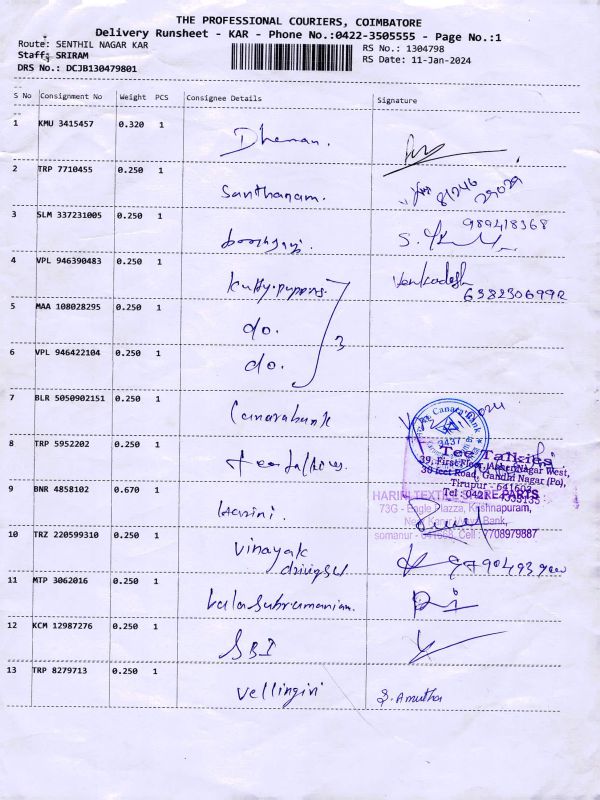 THE PROFESSIONAL COURIERS, COIMBATORE
Delivery Runsheet - KAR - Phone No.:0422-3505555 - Page No.:1
Route: SENTHIL NAGAR KAR
RS No.: 1304798
Staff: SRIRAM
RS Date: 11-Jan-2024
DRS No.: DCJB130479801
S No Consignment No Weight PCS Consignee Details Signature
1 KMU 3415457 0.320 1
2 TRP 7710455 0.250 1 Santhanam.
3 SLM 337231005 0.250 1 989418368
4 VPL 946390483 0.250 1 Venkadesh
6382306992
5 MAA 108028295 0.250 1 do.
3
6 VPL 946422104 0.250 1 do.
7 BLR 5050902151 0.250 1 Canarabank
Canara Bank
8 TRP 5952202 0.250 1 teetalkies.
Tee Talkies
39, First Floor, Nagar West,
30 feet Road, Gandhi Nagar (Po),
Tirupur - 641603
Tel : 0421 - 4335135
9 BNR 4858102 0.670 1 Harini.
HARINI TEXTILE SPARE PARTS
73G - Eagle Plazza, Krishnapuram,
Bank,
somanur - 641668, Cell : 7708979887
10 TRZ 220599310 0.250 1 Vinayak
11 MTP 3062016 0.250 1 balasubramanian.
12 KCM 12987276 0.250 1 SBI
13 TRP 8279713 0.250 1 Vellingiri S. Amutha